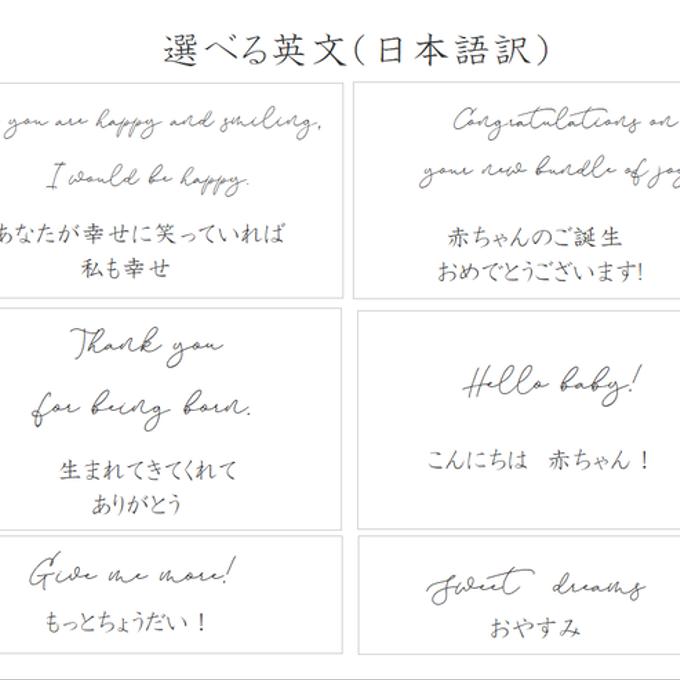 選べる英文(日本語訳)
you are happy and smiling,
I would be happy.
あなたが幸せに笑っていれば
私も幸せ
Congratulations on
your new bundle of joy
赤ちゃんのご誕生
おめでとうございます!
Thank you
for being born.
生まれてきてくれて
ありがとう
Hello baby!
こんにちは 赤ちゃん!
Give me more!
もっとちょうだい!
Sweet dreams
おやすみ